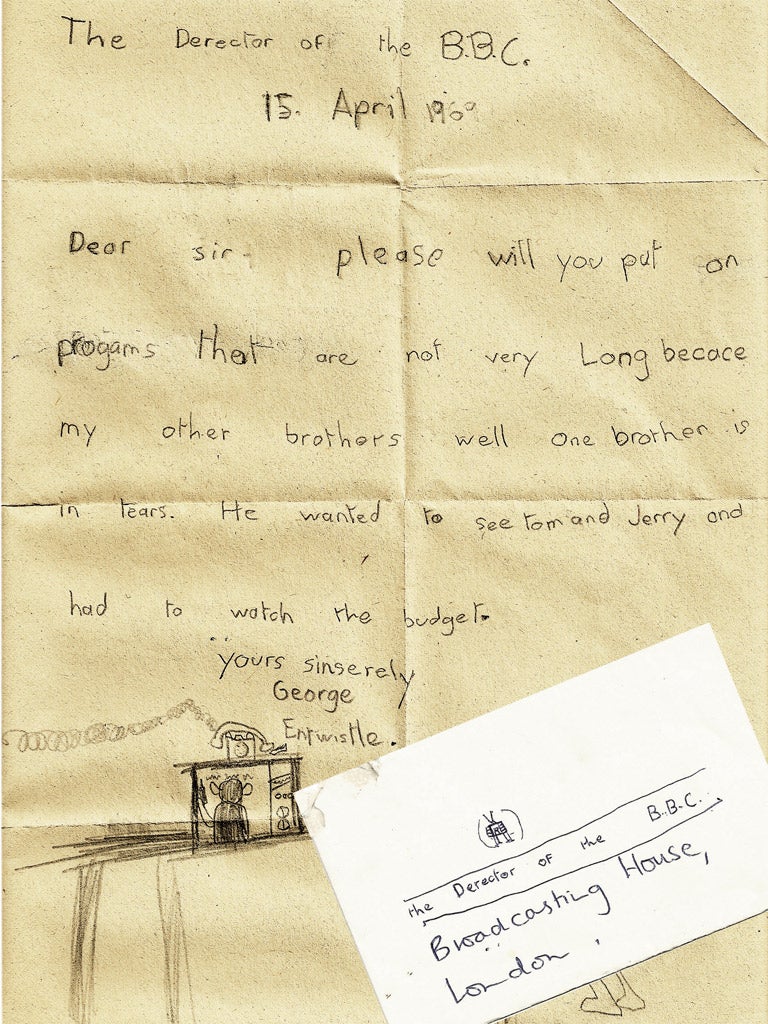 The Derector of the B.B.C.
15. April 1969
Dear sir please will you put on
progams that are not very Long becace
my other brothers well one brother is
in tears. He wanted to see tom and Jerry and
had to watch the budget.
yours sinserely
George
Entwistle.
the Derector of the B.B.C.
Broadcasting House,
London,